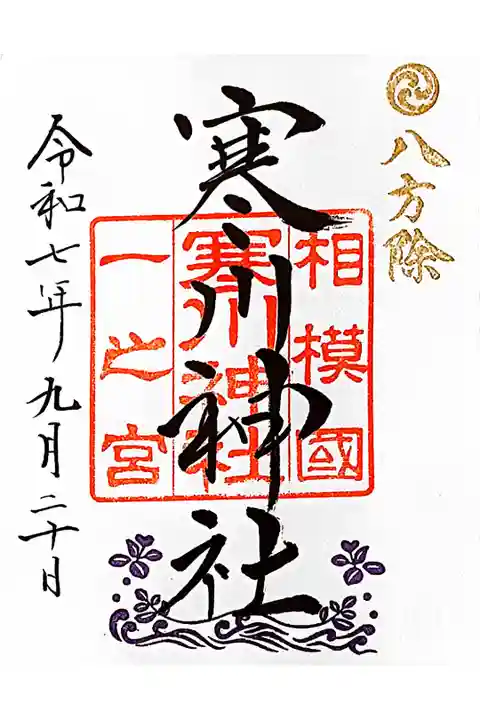 八方除
相模國
寒川神社
一之宮
寒川神社
令和七年九月二十日